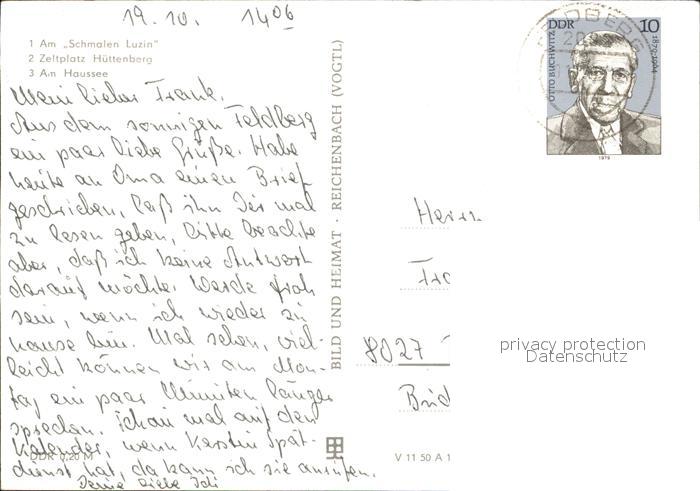 19.10. 1406
1 Am „Schmalen Luzin"
2 Zeltplatz Hüttenberg
3 Am Haussee
Mein lieber Frank.
Aus dem sonnigen Feldberg
ein paar liebe Grüße. Habe
heute an Oma einen Brief
geschrieben, laß ihn Dir mal
zu lesen geben, bitte beachte
aber, daß ich keine Antwort
darauf möchte. Werde froh
sein, wenn ich wieder zu
hause bin. Mal sehen, viel-
leicht können wir am Mon-
tag ein paar Minuten länger
sprechen. Schau mal auf den
Kalender, wenn Kerstin Spät-
dienst hat, da kann ich sie anrufen.
Deine liebe
DDR 0,20 M
BILD UND HEIMAT · REICHENBACH (VOGTL)
V 11 50 A 1
DDR 10
OTTO BUCHWITZ 1879-1964
1979
FELDBERG
20
Herrn
Fra
8027
privacy protection
Datenschutz